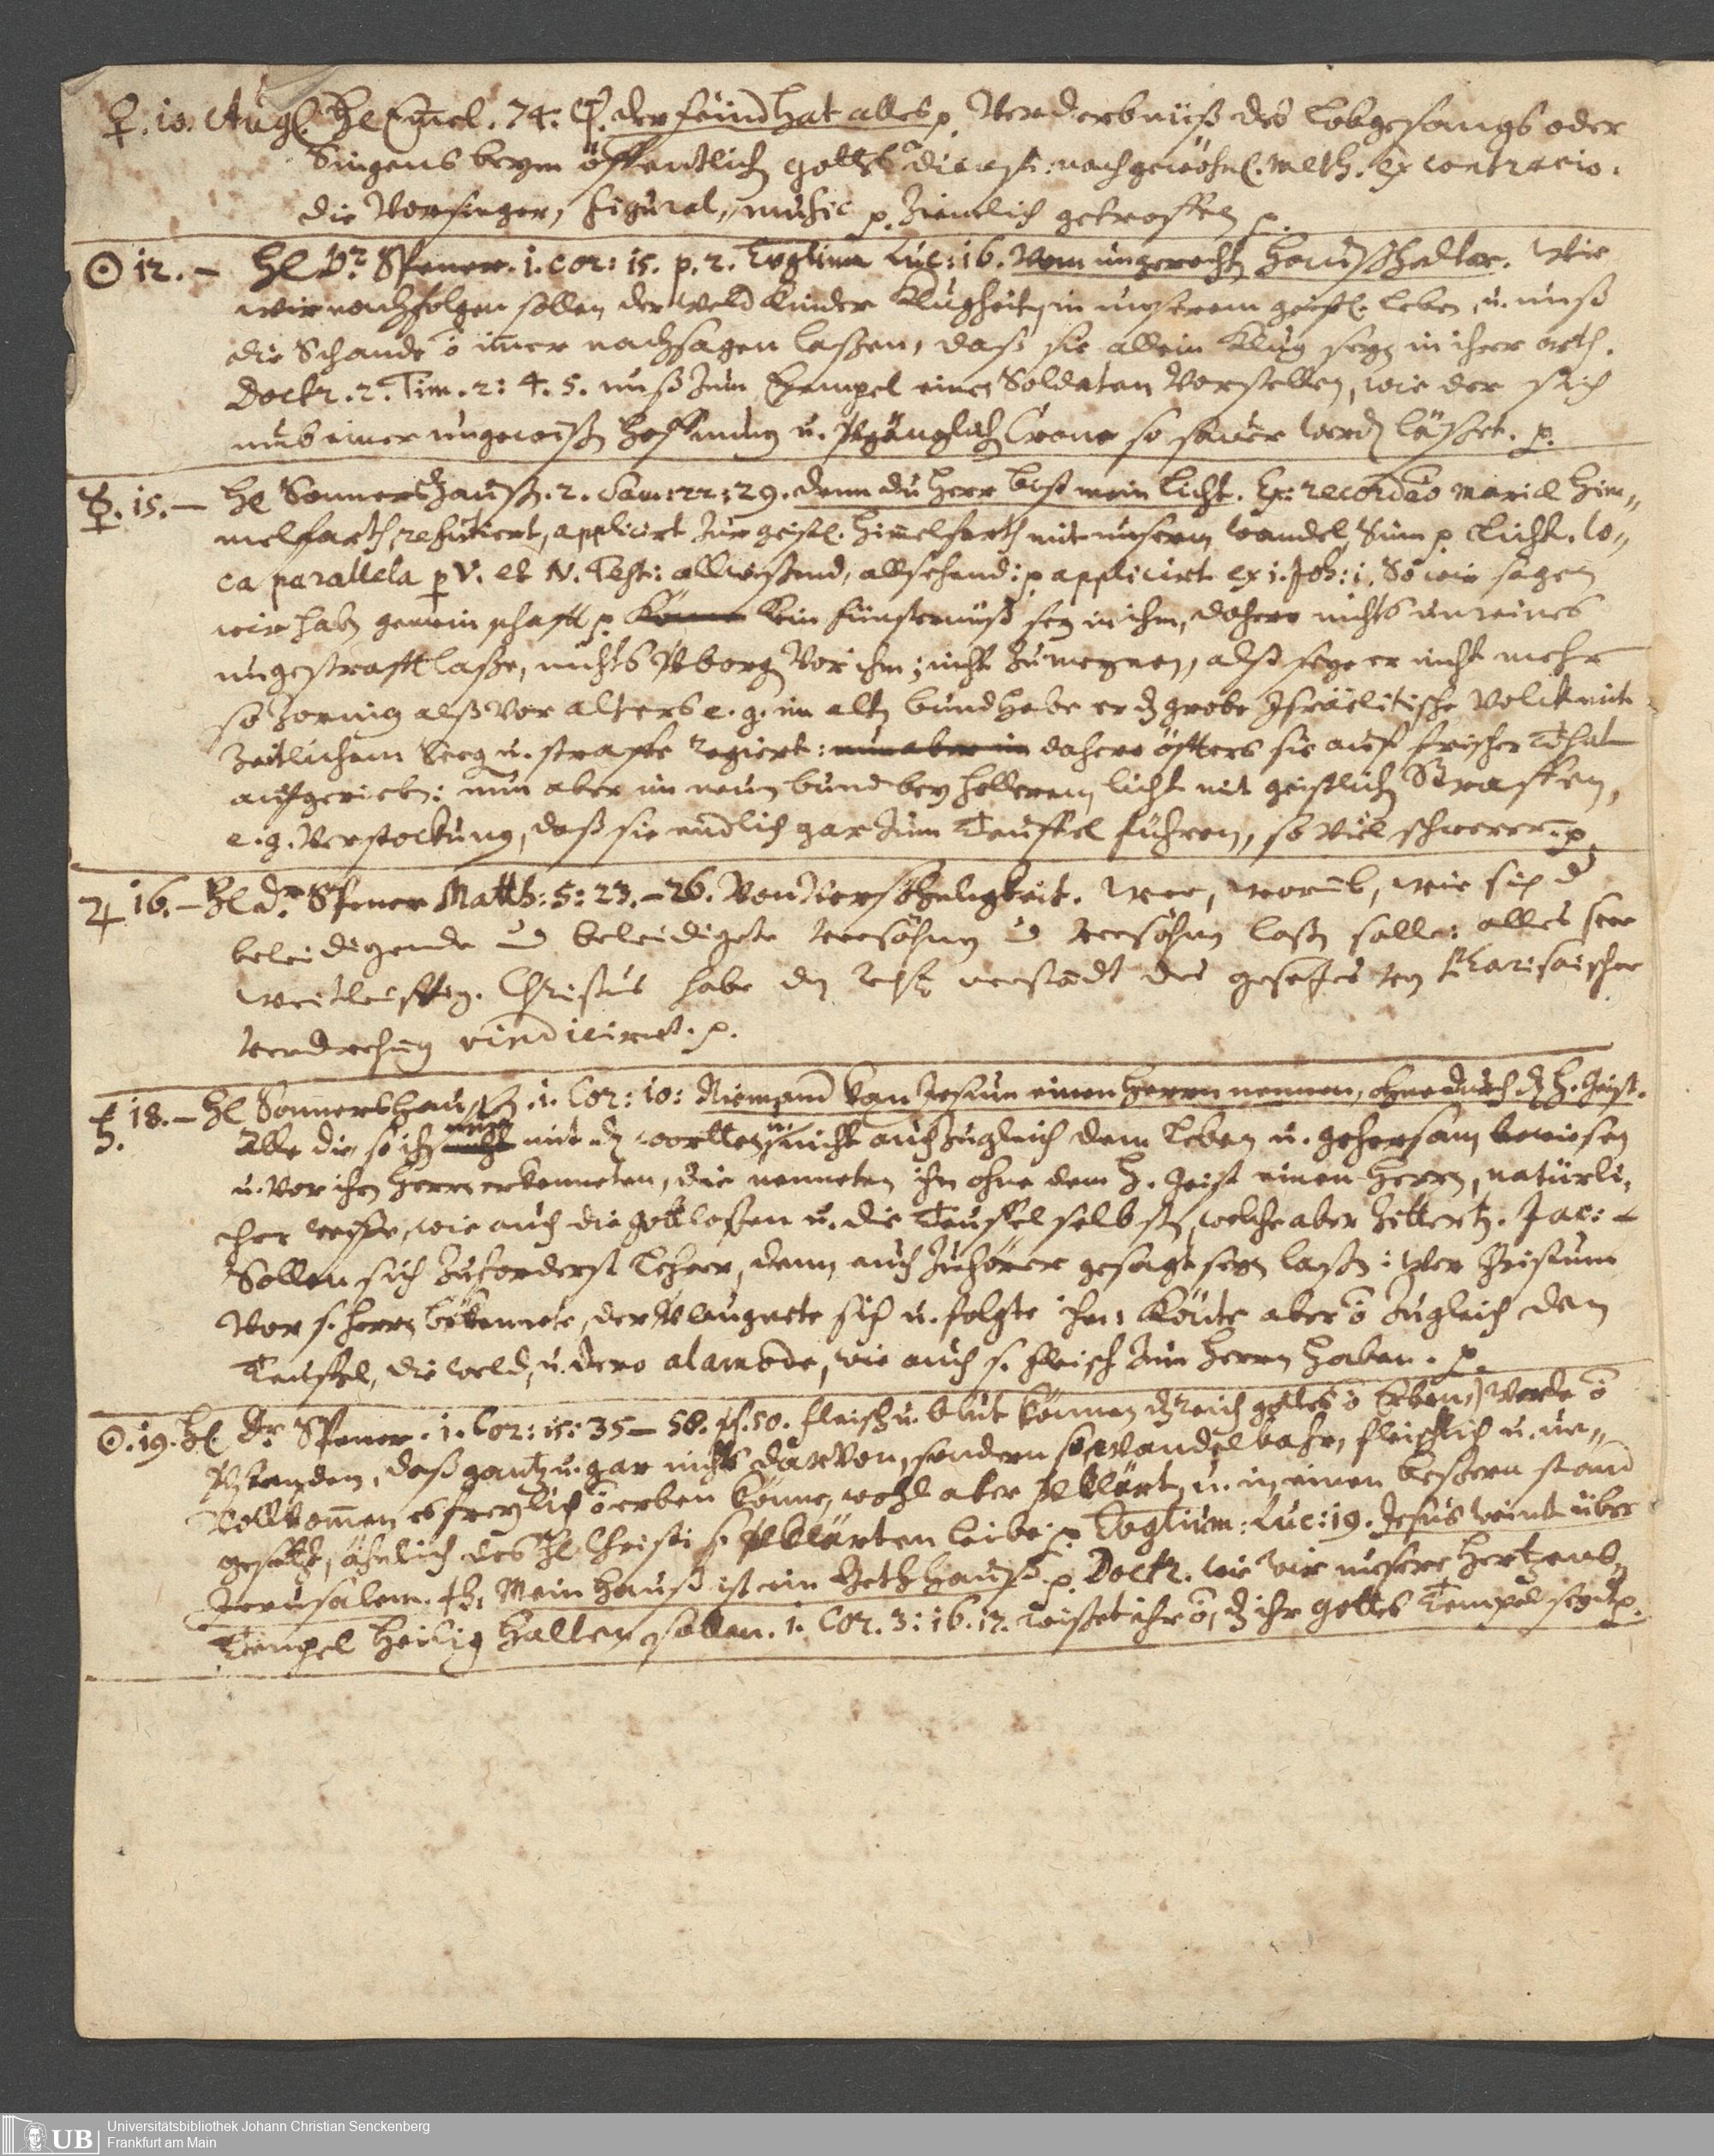 ♀. 10. Aug. Hl Emel. 74. ψ. der feind hat alles p. Verderbnüß des Lobgesangs oder
Singens beym öffentlich gottes dienst: nach gewöhnl. meth. Ex contrario.
die Vorsinger, figural-music p. ziemlich getroffen p.
☉ 12. – Hl Dr. Spener. 1. Cor: 15. p. 2. Evglium Luc: 16. Vom ungerechten Haußhalter. Wie
wir nachfolgen sollen der Weld Kinder Klugheit, in unserem geistl. leben, u. unß
die Schande ō imer nachsagen laßen, daß sie allein klug seyn in ihrer arth.
Doctr. 2. Tim. 2: 4. 5. unß zum Exempel einen Soldaten vorstellen, wie der sich
umb einer ungewißen Hoffnung u. vergänglich Crone so sauer werden läßet. p.
☿. 15. – Hl Sonnershausen. 2. Sam: 22: 29. denn du Herr bist mein Licht. Ex: recordāo Mariæ Him-
melfarth, refutiert, applicirt zur geistl. Himelfarth mit unserm wandel, Sum p. Licht. lo-
ca parallela p V. et N. Test: allwißend, allsehend: p applicirt ex 1. Joh: 1. So wir sagen
wir haben gemeinschafft p kein fünsternüß sey in ihm, dahero nichts unreines
ungestrafft laße, nichts verborgen vor ihm; nicht zu meynen, alß seye er nicht mehr
so zornig alß vor alters e. g. im alten bund habe er dz grobe Israëlitische Volck mit
zeitlichem Seeg u. straffe regiert: nun aber im dahero öffters sie auf frischer That
aufgerieben: nun aber im neuen bund bey hellerem licht mit geistlichen Straffen,
e. g. Verstockung, daß sie endlich gar zum Teuffel führen, so viel schwerer. p.
♃ 16. – Hl Dr. Spener Matth: 5: 23. – 26. Von Versöhnligkeit. Wer, worumb, wie sich d
beleidigende u beleidigete versöhnen u versöhnen laßen solle: alles sehr
weitleufftig. Christus habe den rechten verstandt des gesetzes von Pharisäischer
verdrehung vindiciret. p.
♄. 18. – Hl Sonnershausen. 1. Cor: 10: Niemand kan Jesum einen Herrn nennen, ohne durch d H. Geist.
Alle die, so ihn nur mit den wortten, u. nicht auch zugleich dem Leben u. gehorsam bewiesen
u. vor ihren Herrn erkenneten, die nenneten ihn ohne dem H. Geist einen Herrn, natürli-
cher weiße, wie auch die gottlosen u. die Teuffel selbsten, welche aber zitterten. Jac: 2
Sollen sich zuforderst Lehrer, denn auch Zuhörer gesagt seyn laßen: Wer Christum
vor s. Herrn bekennete, der verlaugnete sich u. folgte ihm: könte aber ō zugleich den
Teuffel, die weld, u. dero alamode, wie auch s. fleisch zum Herrn haben. p
☉. 19. Hl Dr. Spener. 1. Cor: 15: 35 – 58. sp. 50. fleisch u. blut können dz reich gottes ō Erben) werde ō
verstanden, daß gantz u. gar nichts darvon, sondern so, wandelbahr, fleischlich u. un-
vollkomen es freylich ō erben könne, wohl aber verklärt, u. in einen beßern stand
gesetzt, ähnlich des Hl Christi s. verklärten leibe. p Evglium: Luc: 19. Jesus weint über
Jerusalem. tb. Mein Hauß ist ein Bethhauß p. Doctr. wie wir unsere Hertzens
Tempel heilig halten sollen. 1. Cor. 3: 16. 17. wißet ihr ō, dz ihr gottes Tempel seyd p.
Universitätsbibliothek Johann Christian Senckenberg
Frankfurt am Main
UB